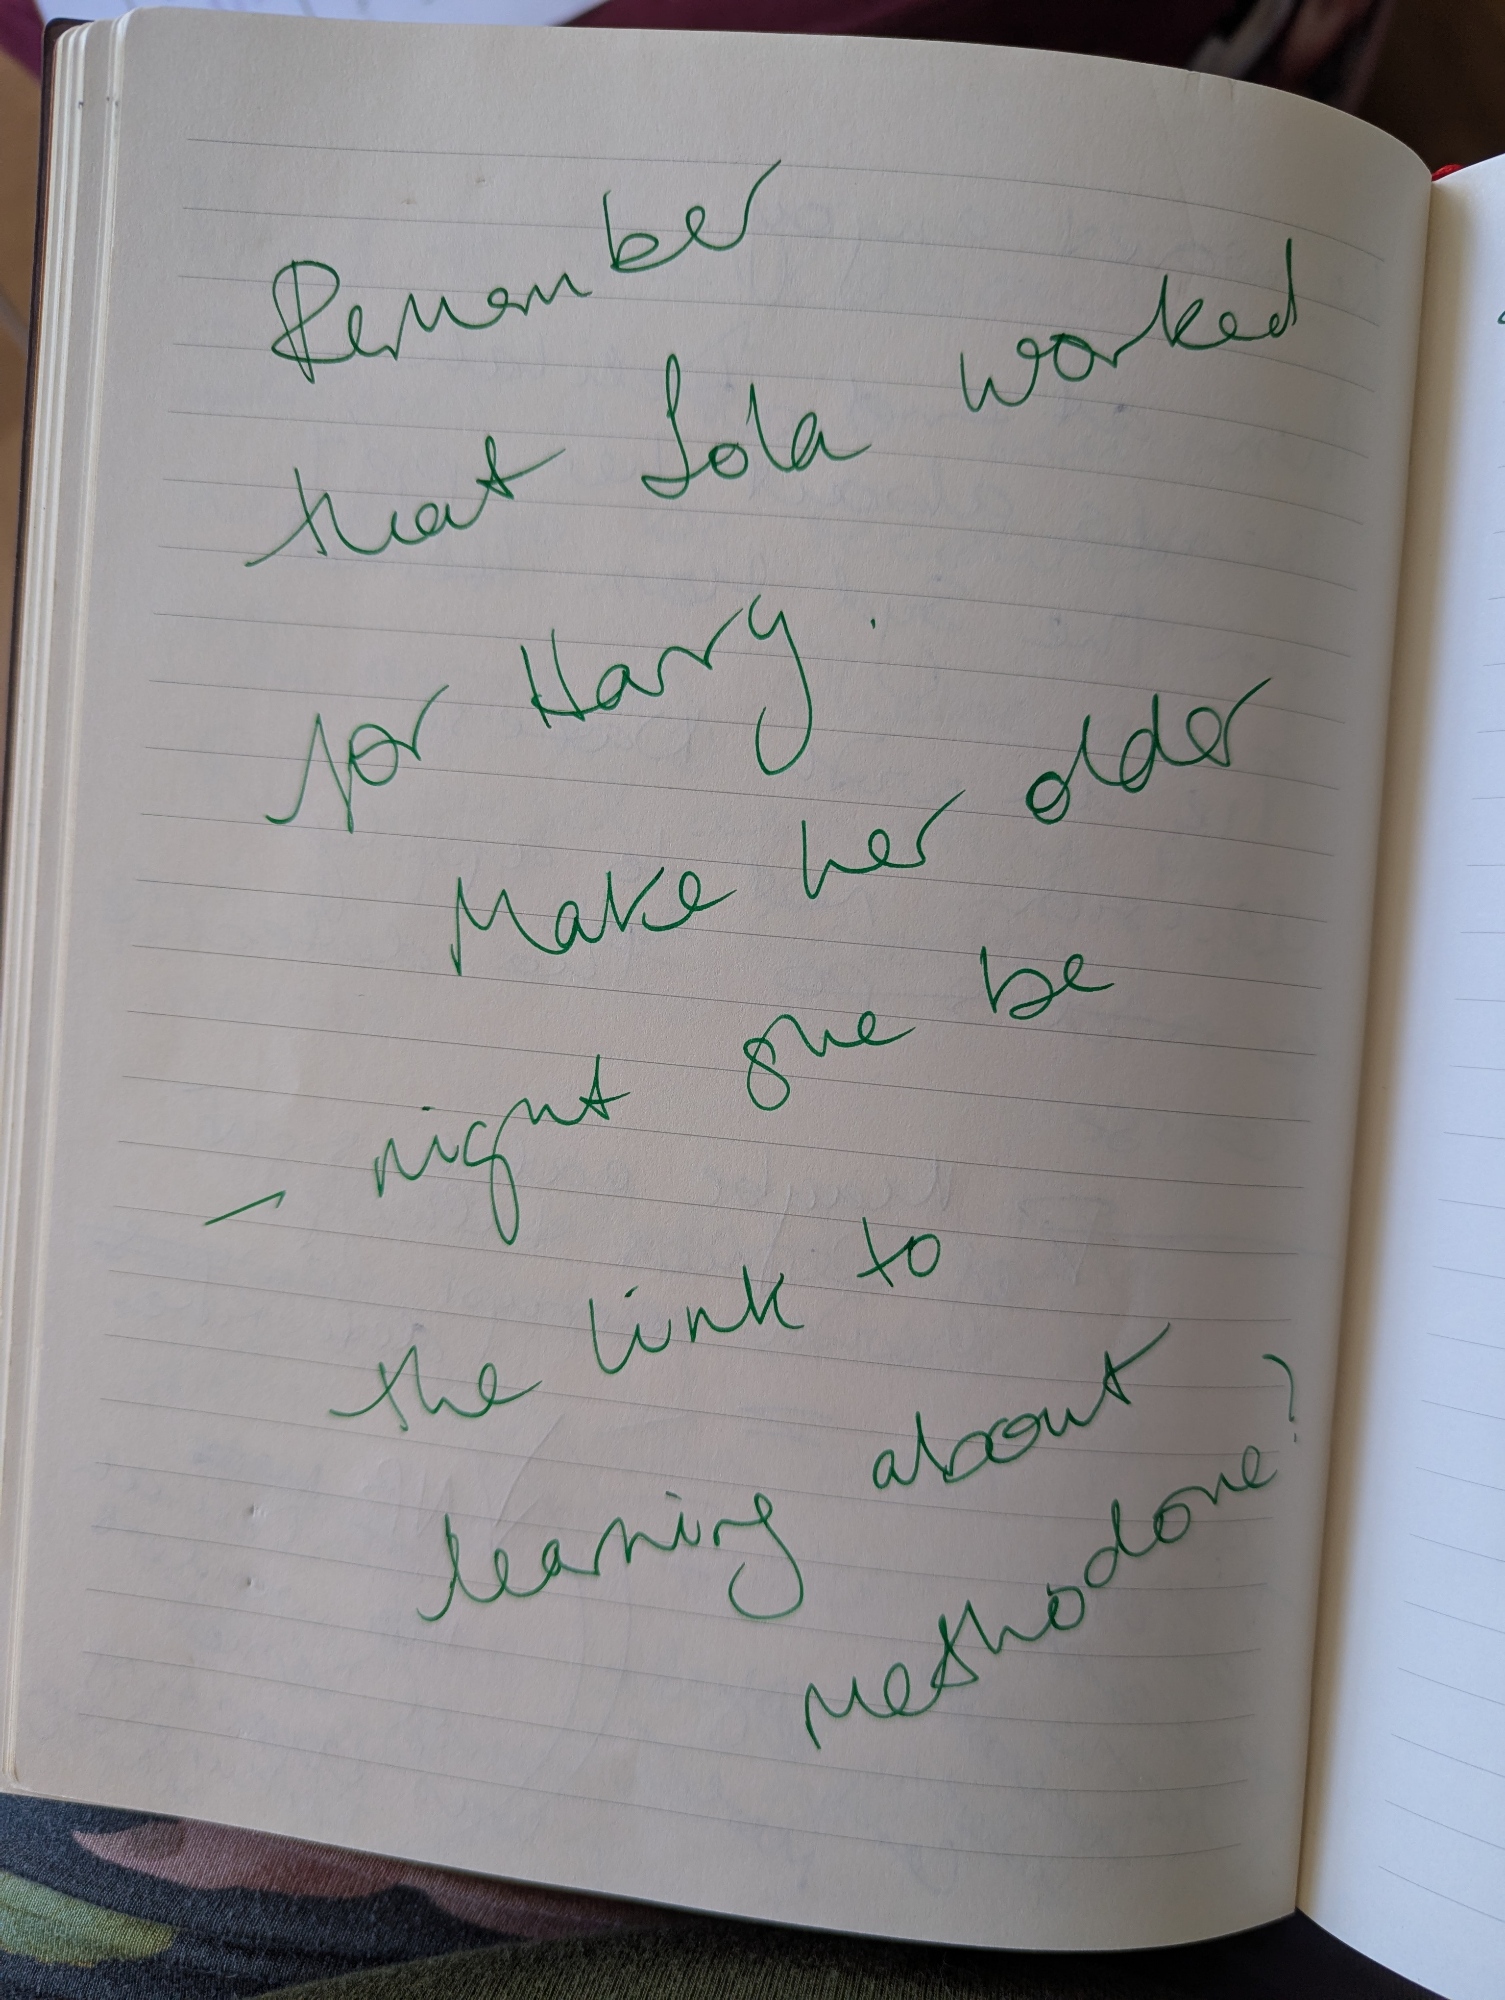 Remember
that Lola worked
for Harry.
Make her older
– might she be
the link to
learning about
methodone?